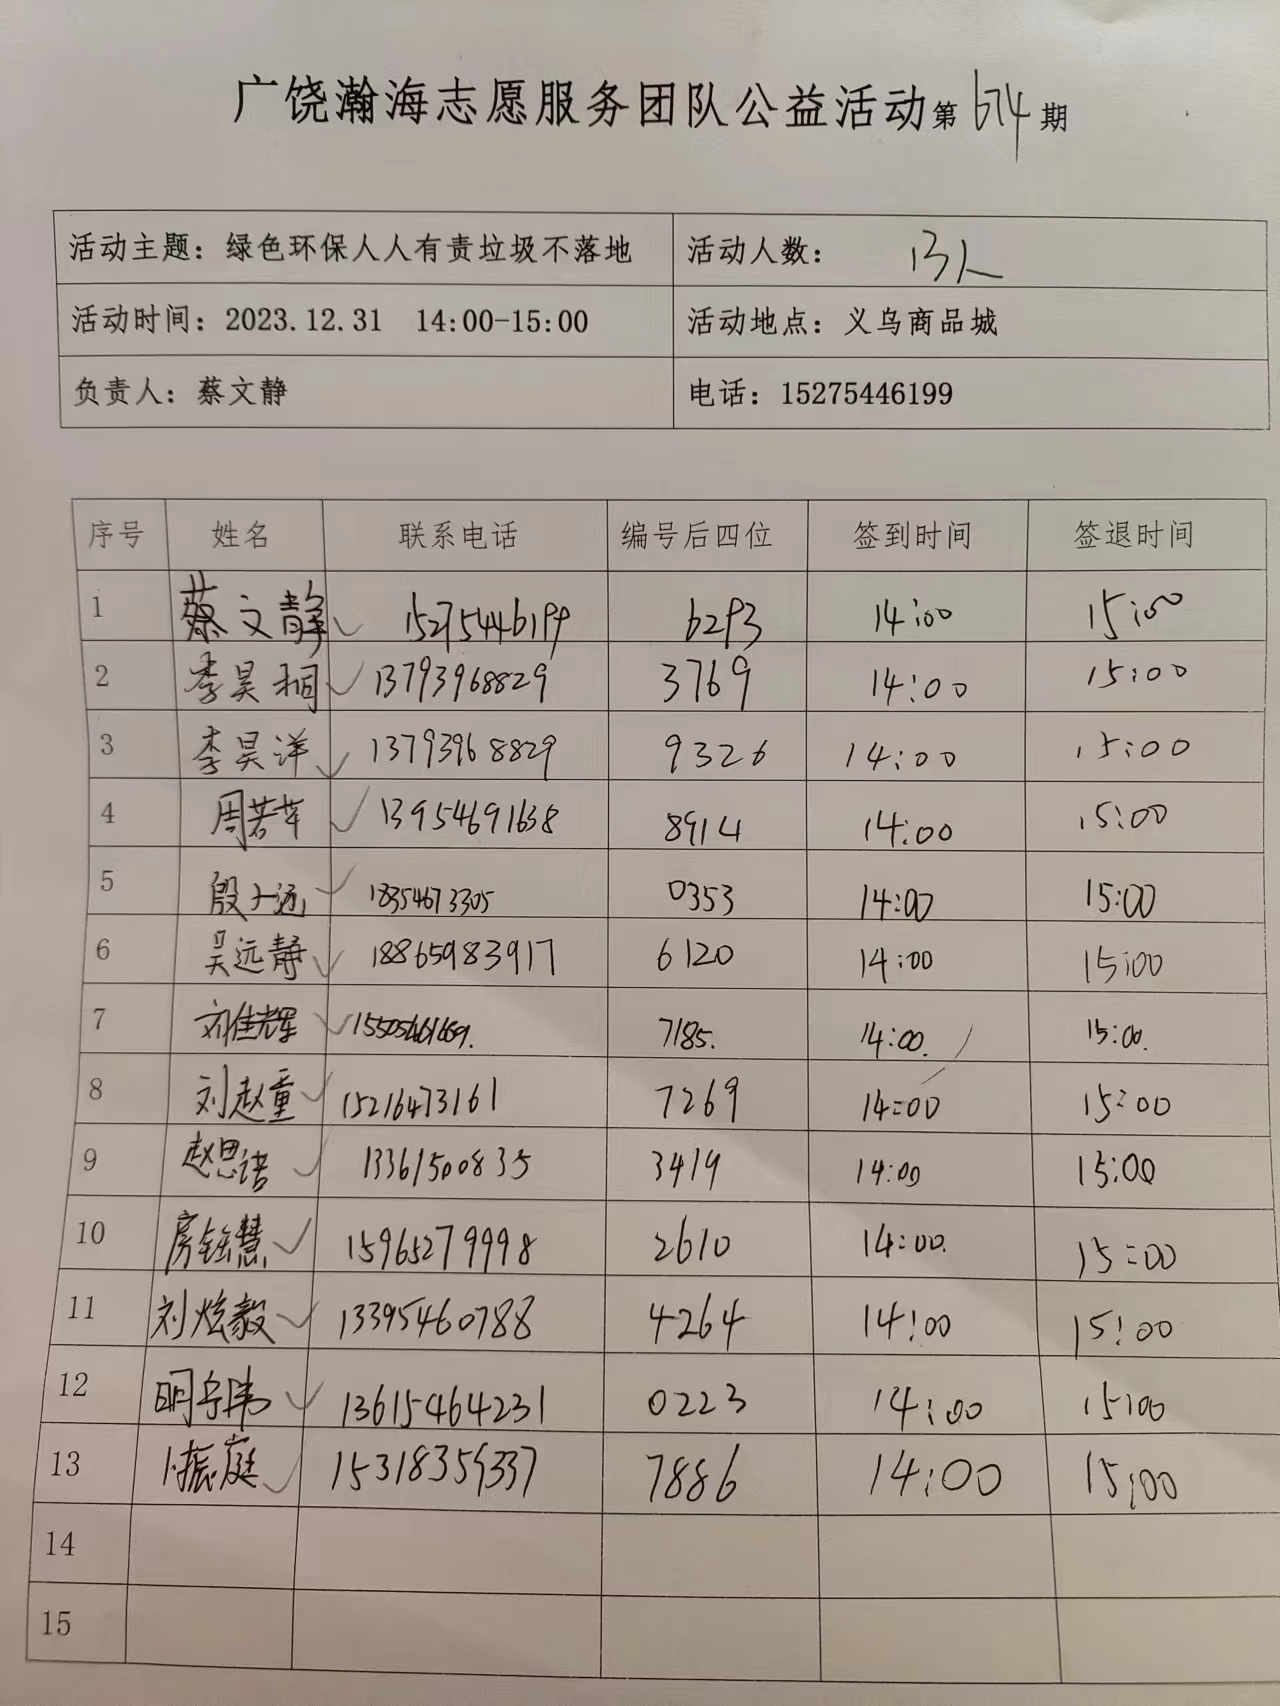 广饶瀚海志愿服务团队公益活动第674期
活动主题：绿色环保人人有责垃圾不落地 活动人数： 13人
活动时间：2023.12.31 14:00-15:00 活动地点：义乌商品城
负责人：蔡文静 电话：15275446199
序号 姓名 联系电话 编号后四位 签到时间 签退时间
1 蔡文静 15275446199 6293 14:00 15:00
2 李昊桐 13793968829 3769 14:00 15:00
3 李昊洋 13793968829 9326 14:00 15:00
4 周若苹 13954691638 8914 14:00 15:00
5 殷 18354673305 0353 14:00 15:00
6 吴远静 18865983917 6120 14:00 15:00
7 刘佳辉 7185. 14:00. 15:00.
8 刘赵重 15216473161 7269 14:00 15:00
9 赵思诺 13361500835 3419 14:00 15:00
10 房钰慧 15965279998 2610 14:00. 15:00
11 刘炫毅 13395460788 4264 14:00 15:00
12 明宇玮 13615464231 0223 14:00 15:00
13 卜振庭 15318359337 7886 14:00 15:00
14
15